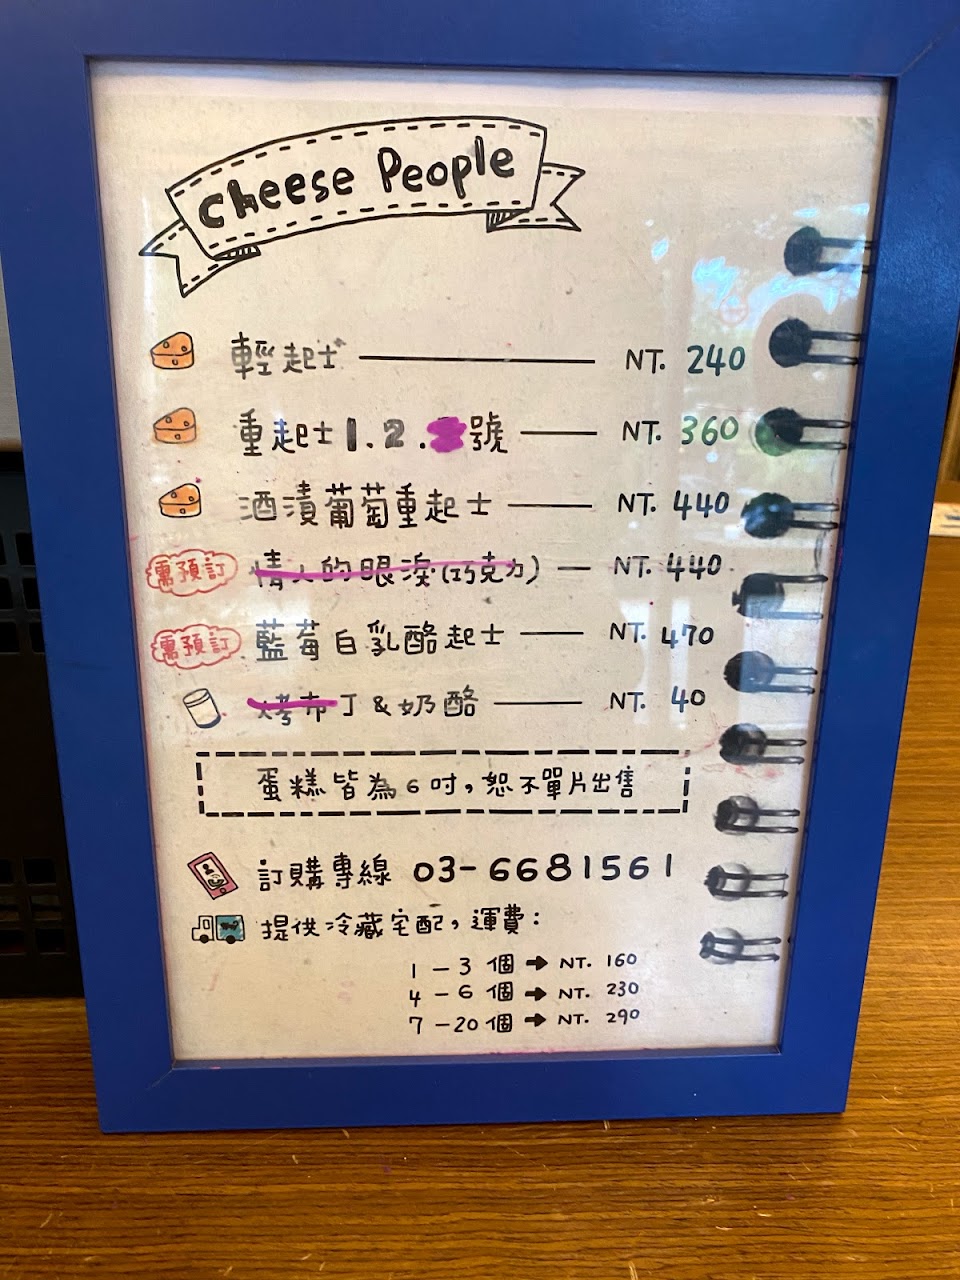 Cheese People
輕起士 NT. 240
重起士 1. 2. 號 NT. 360
酒漬葡萄重起士 NT. 440
需預訂 情人的眼淚(巧克力) NT. 440
需預訂 藍莓白乳酪起士 NT. 470
烤布丁&奶酪 NT. 40
蛋糕皆為6吋,恕不單片出售
訂購專線 03-6681561
提供冷藏宅配,運費:
1-3 個 ➡ NT. 160
4-6 個 ➡ NT. 230
7-20 個 ➡ NT. 290